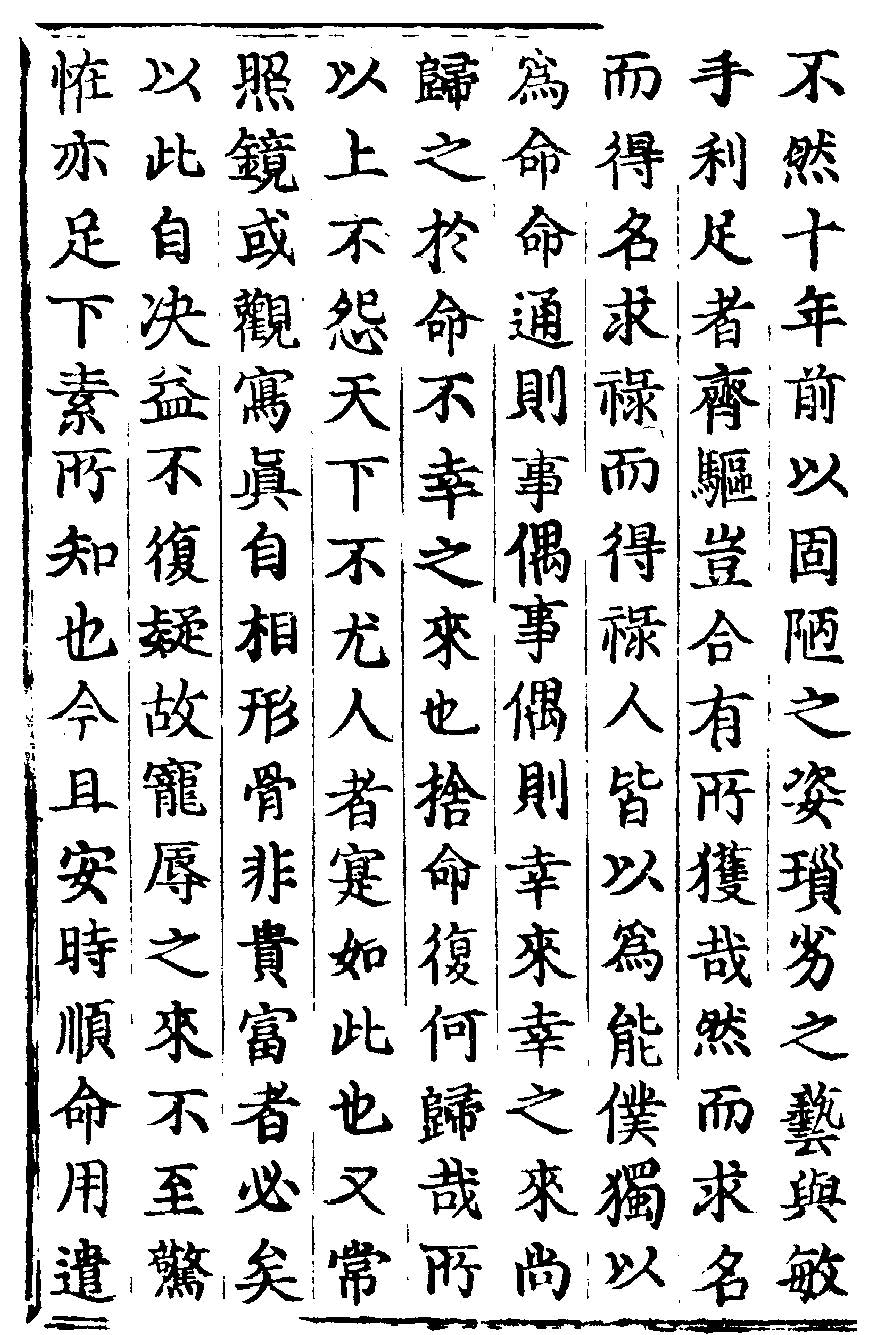 不然十年前以固陋之姿瑣劣之藝與敏
手利足者齊驅豈合有所獲哉然而求名
而得名求祿而得祿人皆以爲能僕獨以
爲命命通則事偶事偶則幸來幸之來尚
歸之於命不幸之來也捨命復何歸哉所
以上不怨天下不尤人者寔如此也又常
照鏡或觀寫眞自相形骨非貴富者必矣
以此自决益不復疑故寵辱之來不至驚
恠亦足下素所知也今且安時順命用遣